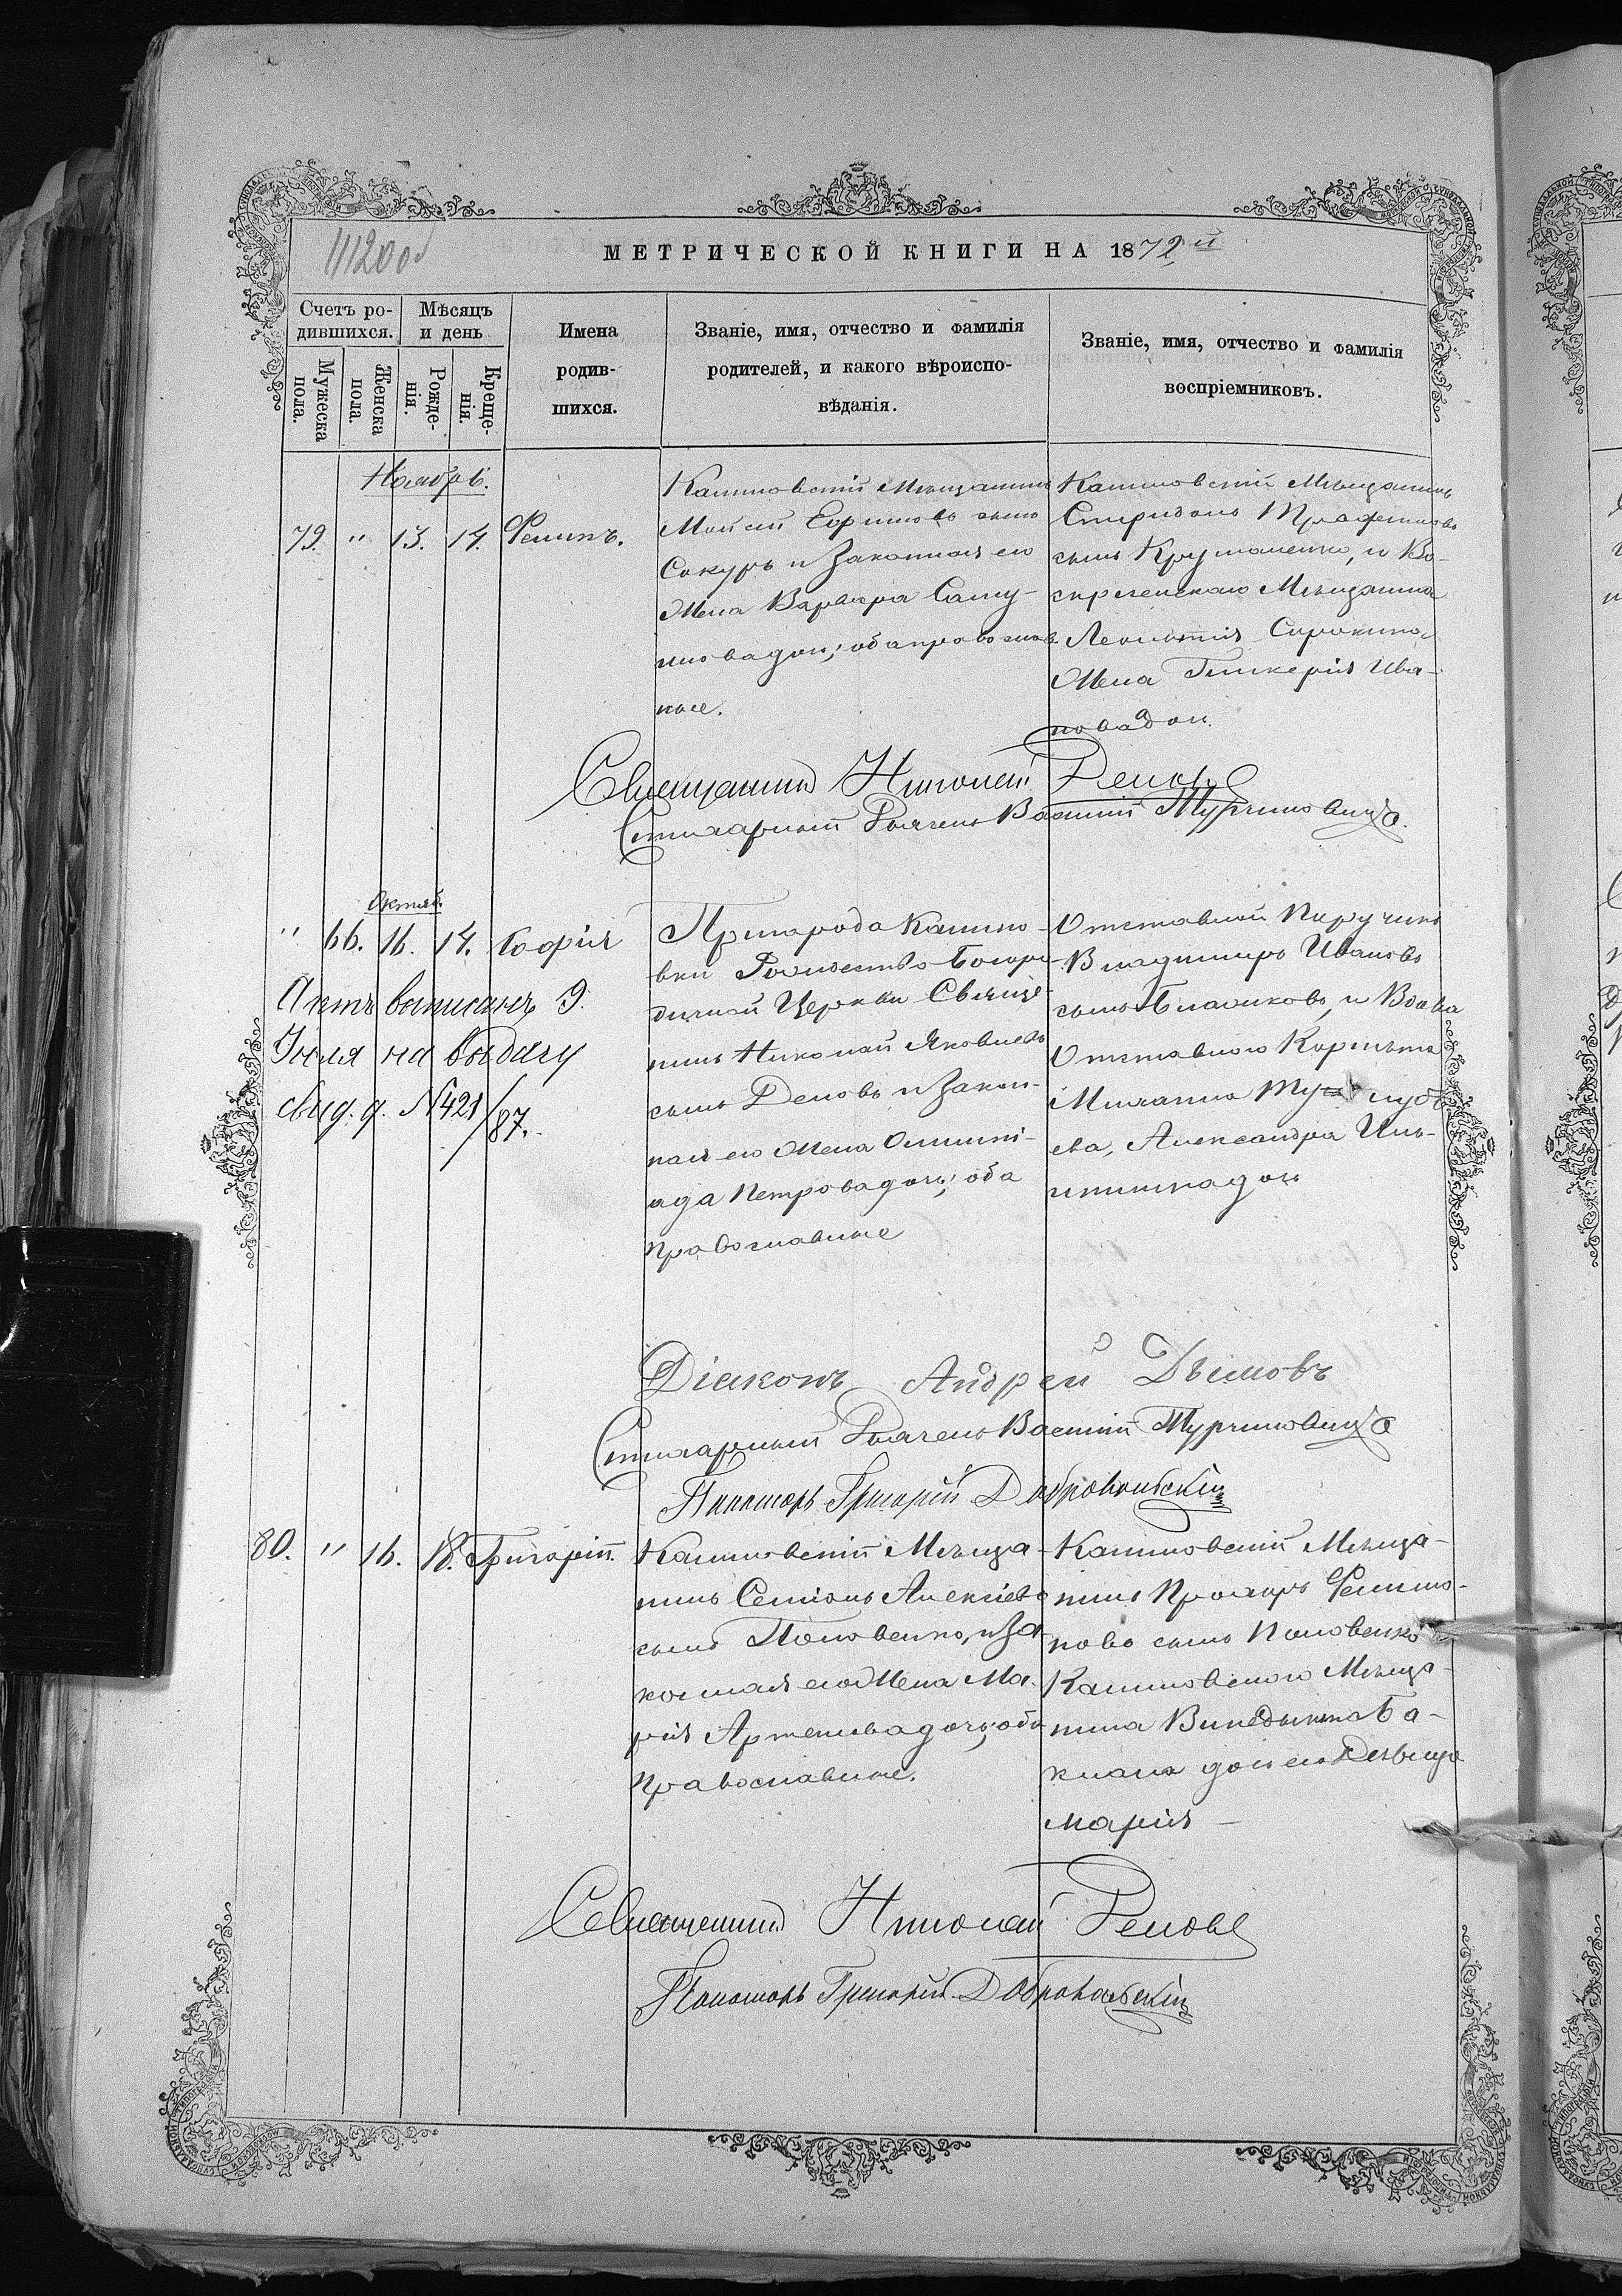 МЕТРИЧЕСКОЙ КНИГИ НА 1872й
Счетъ ро-
дившихся.
Мѣсяцъ
и день
Мужеска
пола.
Женска
пола.
Рожде-
нія.
Креще-
нія.
Имена
родив-
шихся.
Званіе, имя, отчество и фамилія
родителей, и какого вѣроиспо-
вѣданія.
Званіе, имя, отчество и фамилія
воспріемниковъ.
Ноябрь.
79. " 13. 14. Филипъ.
Калиновскій Мѣщанинъ
Мойсей Ефимовъ сынъ
Сокуръ и Законная его
Жена Варвара Саму-
иловадочь; оба православ
ные.
Калиновскій Мѣщанинъ
Спиридонъ Трофимовъ
сынъ Крутоленко, и Во-
скресенскаго Мѣщанина
Леонтія Сорокина
Жена Гликерія Ива-
новадочь.
Священникъ Николай Демовъ
Стихарный Дьячекъ Василій Турчиновичъ
Октяб.
" 66. 16. 14. Софія
Актъ выписанъ 9.
Іюля на выдачу
свид. д. №421/87.
Пригорода Калино-
вки Рождество-Богоро-
дичной Церкви Священ-
никъ Николай Яковлевъ
сынъ Демовъ и Закон-
ная его Жена Олимпі-
ада Петровадочь; оба
Православные
Отставной Поручикъ
Владимиръ Ивановъ
сынъ и Вдова
Отставного Корнета
Михаила
ева, Александра Иль-
инишнадочь
Діаконъ Андрей Дымовъ
Стихарный Дьячекъ Василій Турчиновичъ
Пономарь Григорій Добровольскій
80. " 16. 18. Григорій.
Калиновскій Мѣща-
нинъ Семіонъ Алексіевъ
сынъ Половенко, и За-
конная его Жена Ма-
рія Артемовадочь; оба
Православные.
Калиновскій Мѣща-
нинъ Прохоръ Филимо-
новъ сынъ Половенко
Калиновского Мѣща-
нина Винедикта Ба-
клана дочь его Дѣвица
Марія —
Священникъ Николай Демовъ
Пономарь Григорій Добровольскій